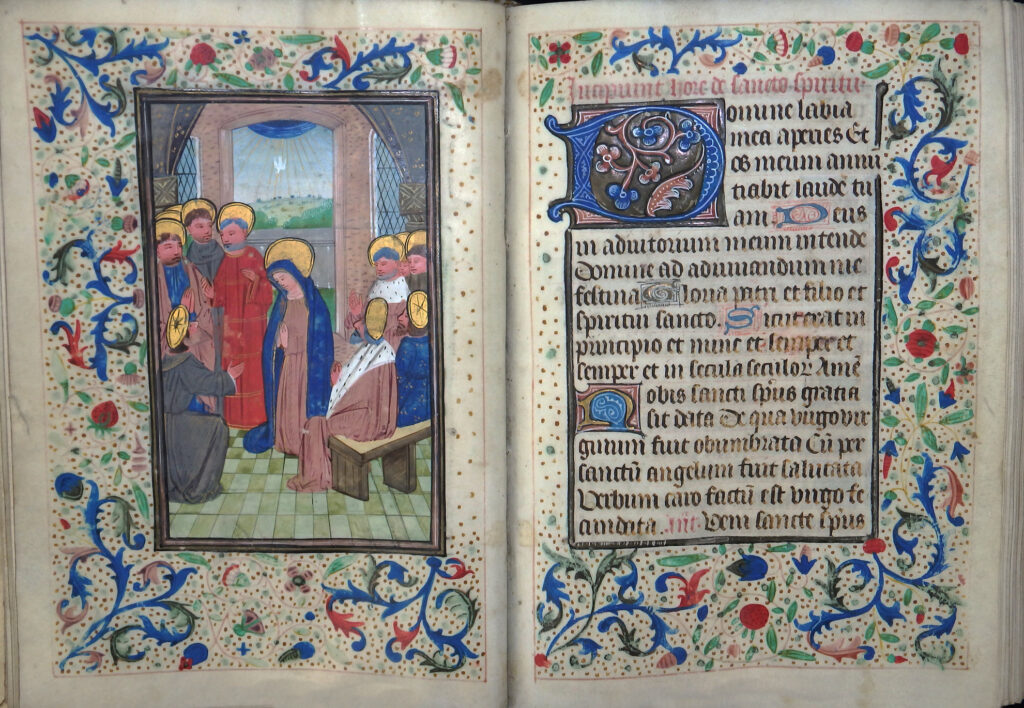 Incipiunt hore de sancto spiritu
Domine labia
mea aperies Et
os meum annu
tiabit laude tu
am Deus
in aduitorium meum intende
Domine ad adiuuandum me
festina Gloria patri et filio et
spiritui sancto. Sicut erat in
principio et nunc et semper et
semper et in secula seculor Ame
Nobis sancti spus gracia
sit data De qua uirgo uir
ginum fuit obumbrata Cu per
sanctu angelum fuit salutata
Verbum caro factu est uirgo fe
cundata ant Veni sancte spus